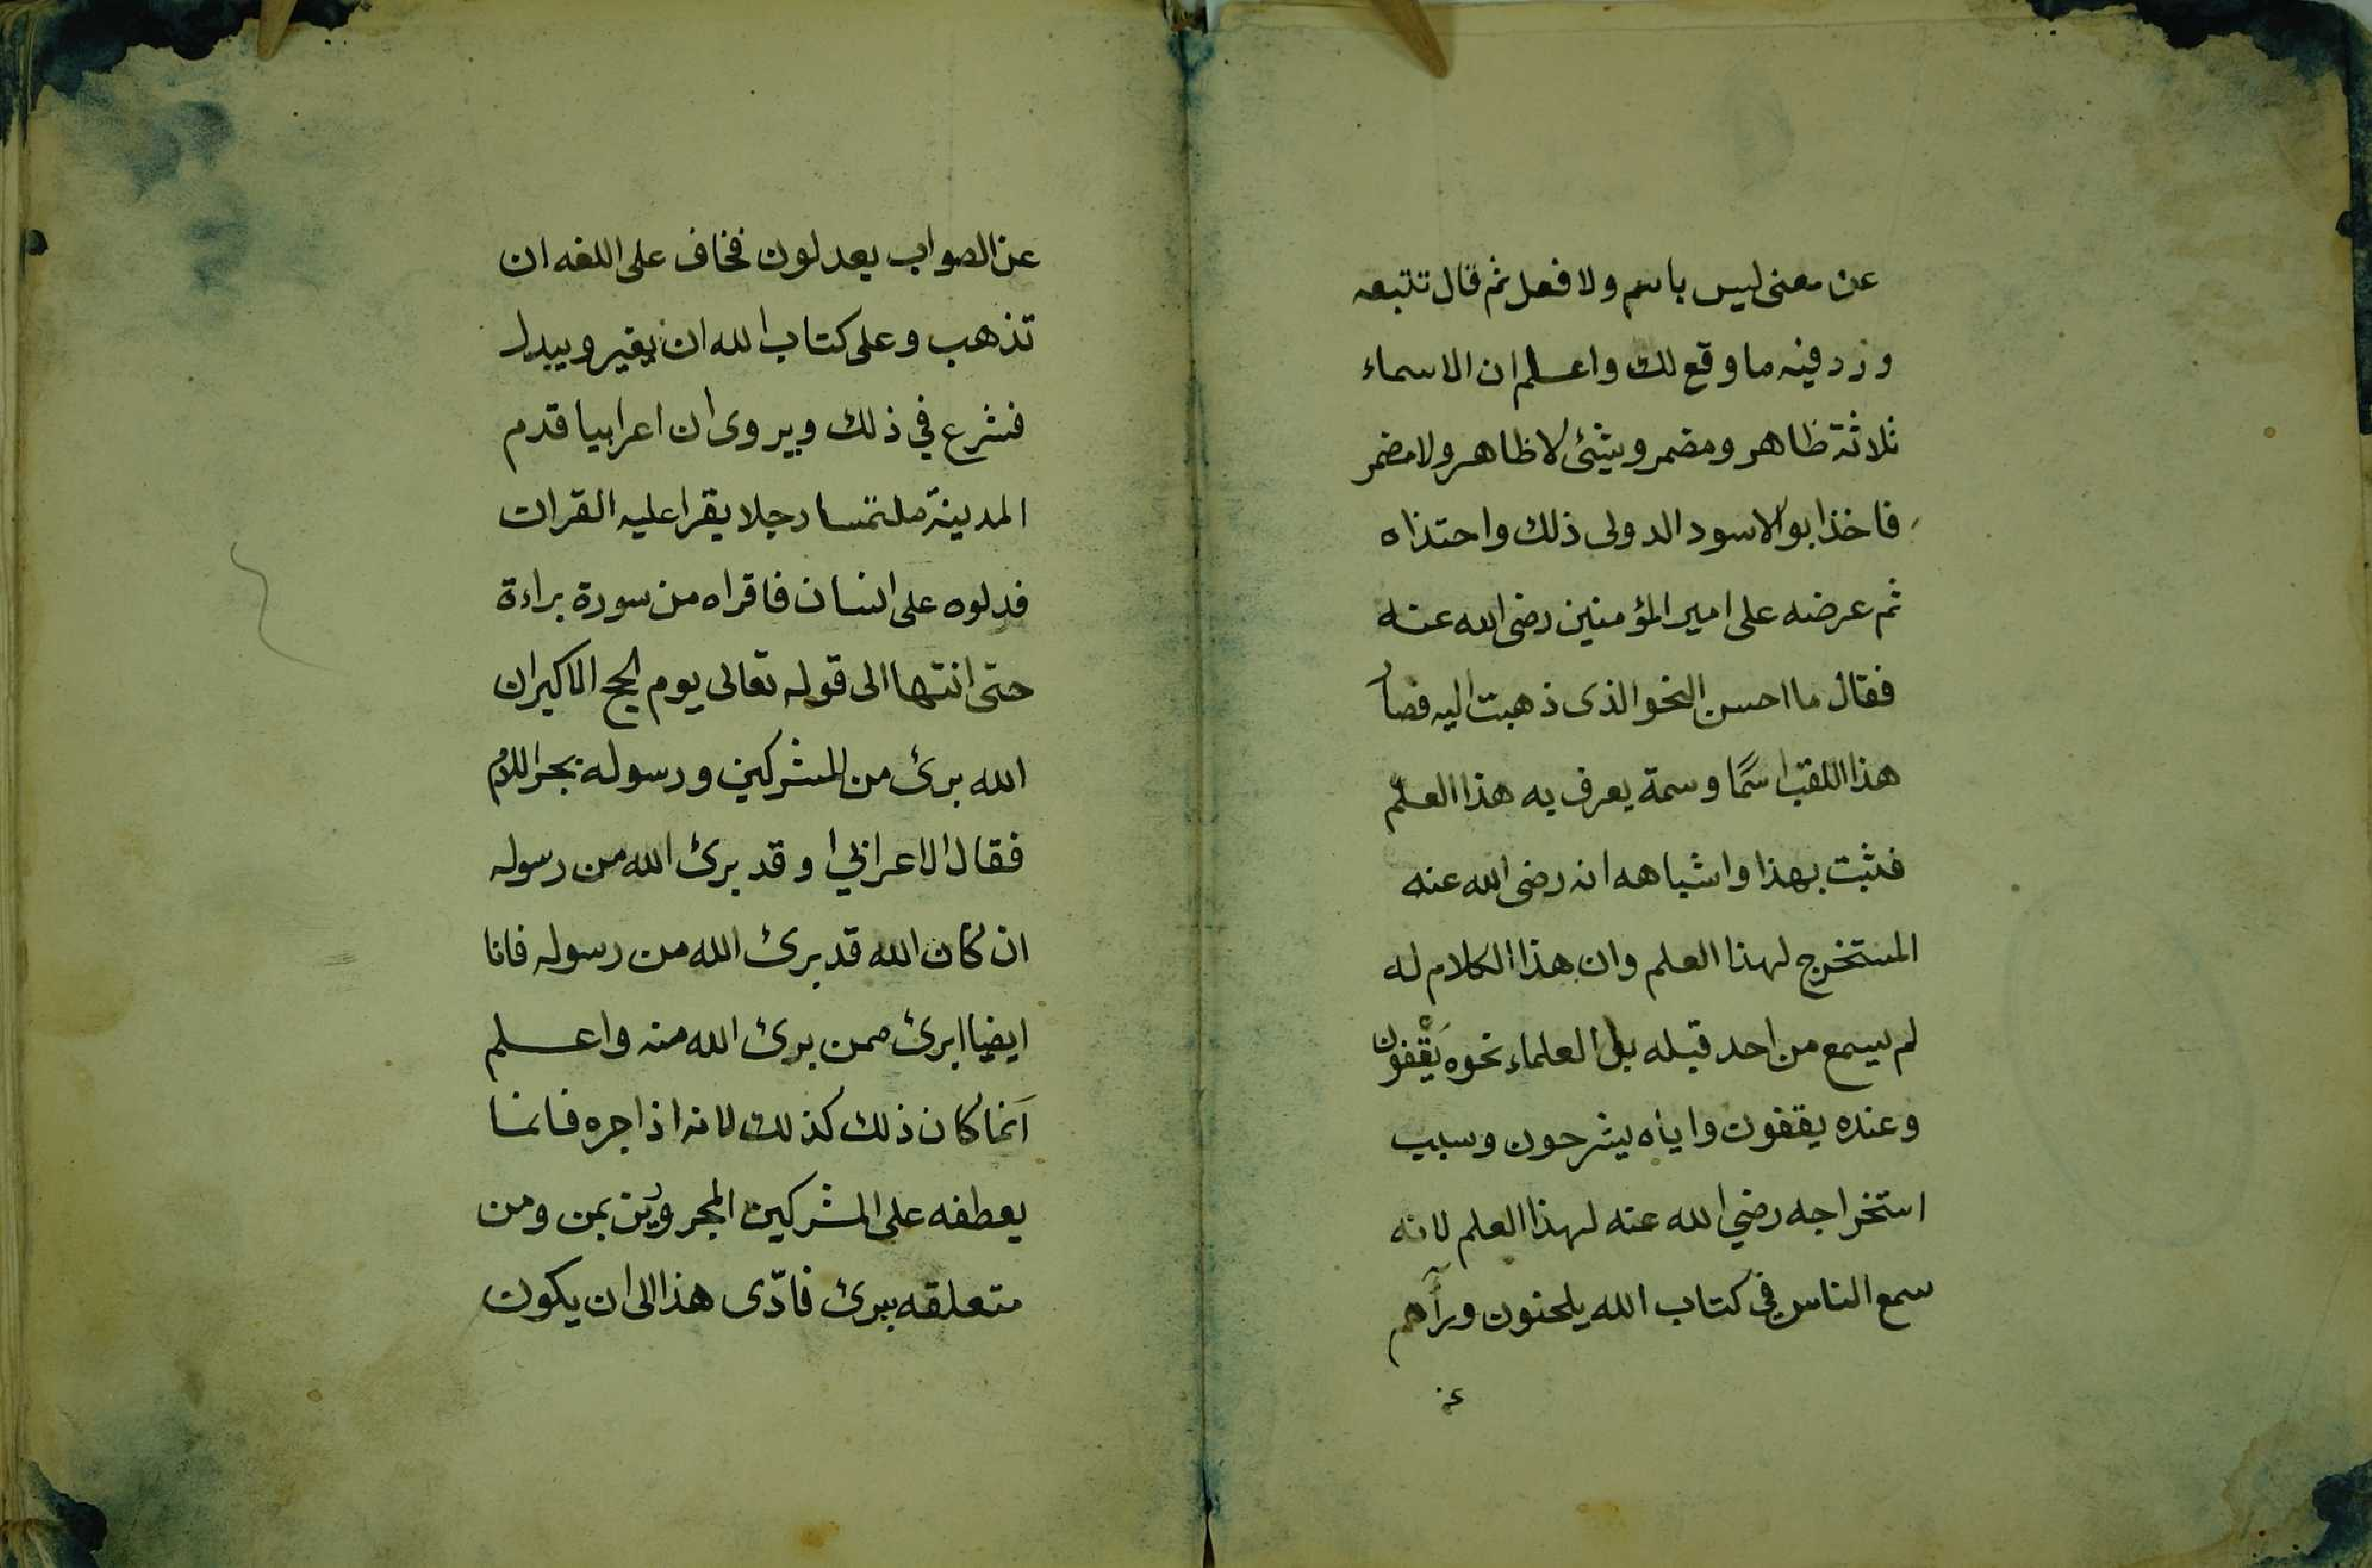 عن معنى ليس باسم ولا فعل ثم قال تتبعه
وزد فيه ما وقع لك واعلم ان الاسماء
ثلاثة ظاهر ومضمر وشئ لا ظاهر ولا مضمر
فاخذ ابو الاسود الدولى ذلك واحتذاه
ثم عرضه على امير المؤمنين رضى الله عنه
فقال ما احسن النحو الذى ذهبت اليه فصار
هذا اللقب اسمًا وسمة يعرف به هذا العلم
فثبت بهذا واشباهه انه رضى الله عنه
المستخرج لهذا العلم وان هذا الكلام له
لم يسمع من احد قبله بل العلماء نحوه يَقْفون
وعنده يقفون واياه يشرحون وسبب
استخراجه رضي الله عنه لهذا العلم لانه
سمع الناس في كتاب الله يلحنون ورآهم
عن
عن الصواب يعدلون فخاف على اللغه ان
تذهب وعلى كتاب الله ان يغير ويبدل
فشرع في ذلك ويروى ان اعرابيا قدم
المدينة ملتمسا رجلا يقرا عليه القران
فدلوه على انسان فاقراه من سورة براءة
حتى انتها الى قوله تعالى يوم الحج الاكبر ان
الله برئ من المشركين ورسوله بجر اللام
فقال الاعرابي او قد برئ الله من رسوله
ان كان الله قد برئ الله من رسوله فانا
ايضا ابرئ ممن برئ الله منه واعلم
انما كان ذلك كذلك لانه اذا جره فانما
يعطفه على المشركين المجرورين بمن ومن
متعلقه ببرئ فادّى هذا الى ان يكون